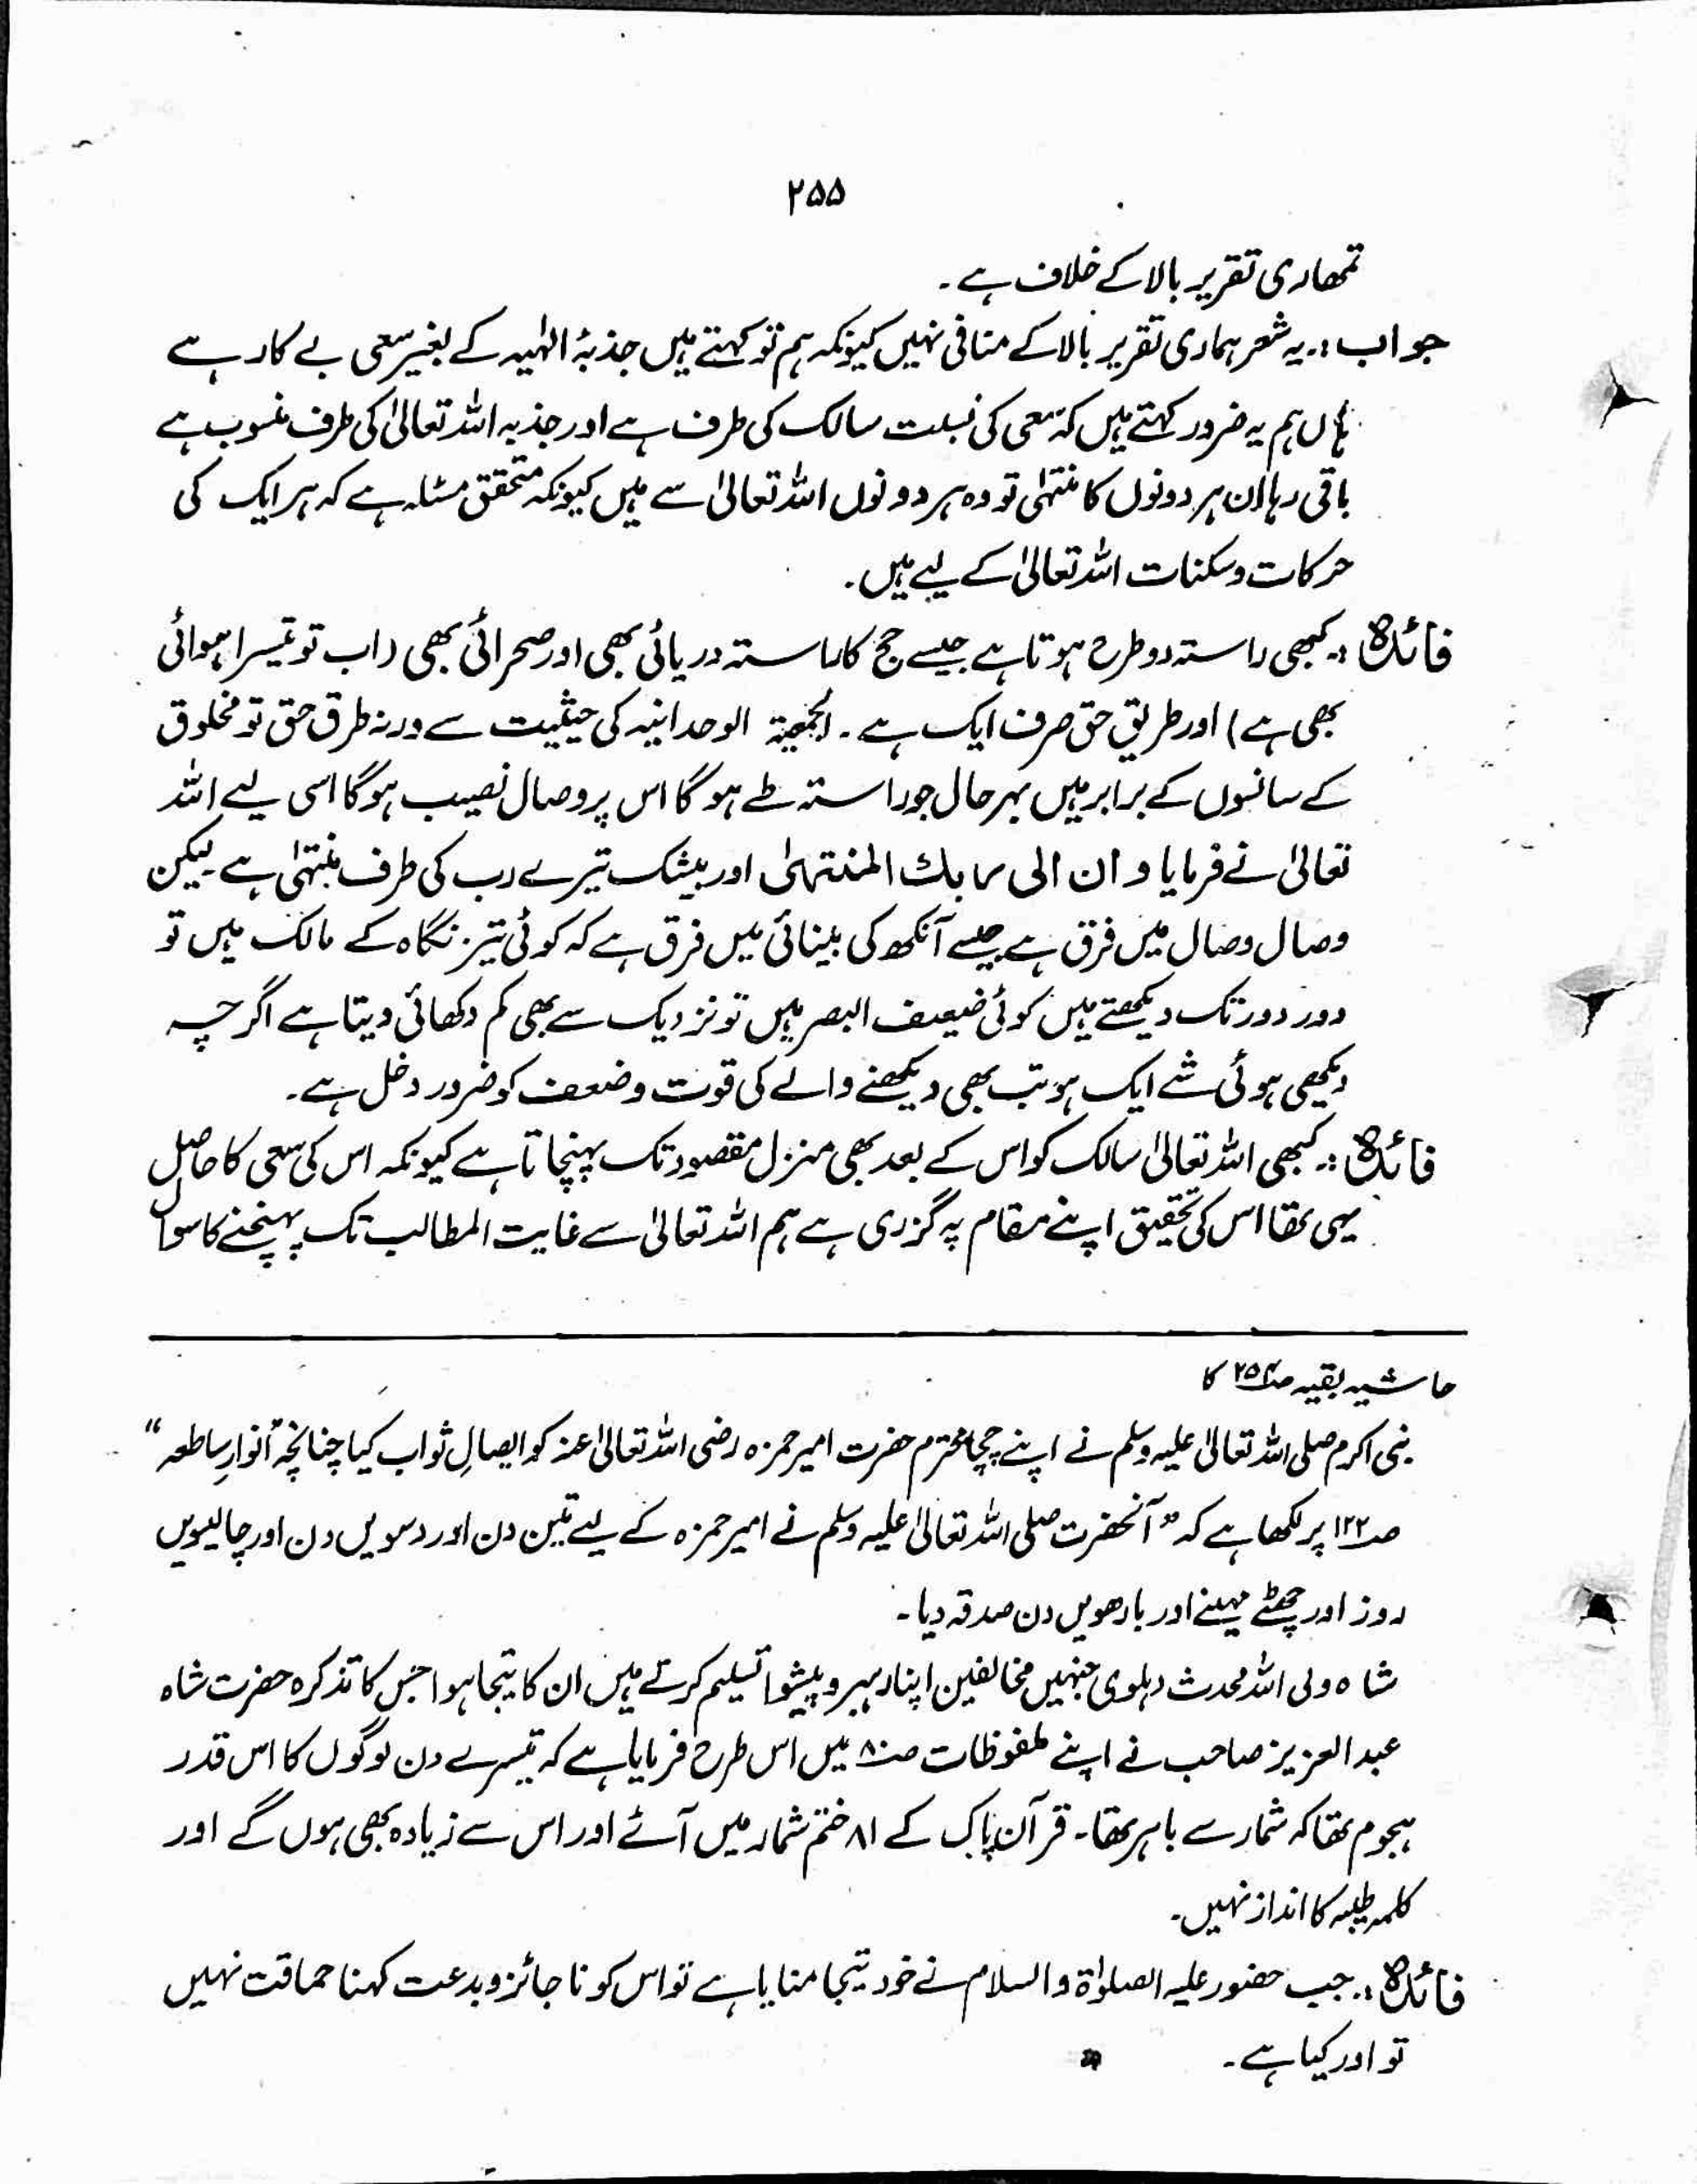 ۲۵۵
تمھاری تقریر بالا کے خلاف ہے۔
جواب :۔ یہ شعر ہماری تقریر بالا کے منافی نہیں کیونکہ ہم تو کہتے ہیں جذبۂ الٰہیہ کے بغیر سعی بے کار ہے
ہاں ہم یہ ضرور کہتے ہیں کہ سعی کی نسبت سالک کی طرف ہے اور جذبہ اللہ تعالیٰ کی طرف منسوب ہے
باقی رہا ان ہر دونوں کا منتہٰی تو وہ ہر دونوں اللہ تعالیٰ سے ہیں کیونکہ متحقق مسئلہ ہے کہ ہر ایک کی
حرکات و سکنات اللہ تعالیٰ کے لیے ہیں۔
فائدہ :۔ کبھی راستہ دو طرح ہوتا ہے جیسے حج کا راستہ دریائی بھی اور صحرائی بھی (اب تو تیسرا ہوائی
بھی ہے) اور طریق حق صرف ایک ہے۔ الجمعیۃ الوحدانیہ کی حیثیت سے ورنہ طرق حق تو مخلوق
کے سانسوں کے برابر ہیں بہر حال جو راستہ طے ہو گا اس پر وصال نصیب ہو گا اسی لیے اللہ
تعالیٰ نے فرمایا و ان الی ربك المنتھیٰ اور بیشک تیرے رب کی طرف منتہٰی ہے لیکن
وصال وصال میں فرق ہے جیسے آنکھ کی بینائی میں فرق ہے کہ کوئی تیز نگاہ کے مالک ہیں تو
دور دور تک دیکھتے ہیں کوئی ضیعف البصر ہیں تو نزدیک سے بھی کم دکھائی دیتا ہے اگرچہ
دیکھی ہوئی شے ایک ہو تب بھی دیکھنے والے کی قوت و ضعف کو ضرور دخل ہے۔
فائدہ :۔ کبھی اللہ تعالیٰ سالک کو اس کے بعد بھی منزل مقصود تک پہنچاتا ہے کیونکہ اس کی سعی کا حاصل
یہی تھا اس کی تحقیق اپنے مقام پہ گزری ہے ہم اللہ تعالیٰ سے غایت المطالب تک پہنچنے کا سوال
حاشیہ بقیہ صـ۲۵۴ کا
نبی اکرم صلی اللہ تعالیٰ علیہ وسلم نے اپنے چچا محترم حضرت امیر حمزہ رضی اللہ تعالیٰ عنہ کو ایصالِ ثواب کیا چنانچہ "انوارِ ساطعہ"
صـ۱۲۲ پر لکھا ہے کہ "آنحضرت صلی اللہ تعالیٰ علیہ وسلم نے امیر حمزہ کے لیے تین دن اور دسویں دن اور چالیسویں
روز اور چھٹے مہینے اور بارھویں دن صدقہ دیا۔
شاہ ولی اللہ محدث دہلوی جنہیں مخالفین اپنا رہبر و پیشوا تسلیم کرتے ہیں ان کا تیجا ہوا جس کا تذکرہ حضرت شاہ
عبد العزیز صاحب نے اپنے ملفوظات صـ۸۰ میں اس طرح فرمایا ہے کہ تیسرے دن لوگوں کا اس قدر
ہجوم تھا کہ شمار سے باہر تھا۔ قرآن پاک کے ۸۱ ختم شمار میں آئے اور اس سے زیادہ بھی ہوں گے اور
کلمہ طیبہ کا انداز نہیں۔
فائدہ :۔ جب حضور علیہ الصلوٰۃ والسلام نے خود تیجا منایا ہے تو اس کو ناجائز و بدعت کہنا حماقت نہیں
تو اور کیا ہے۔